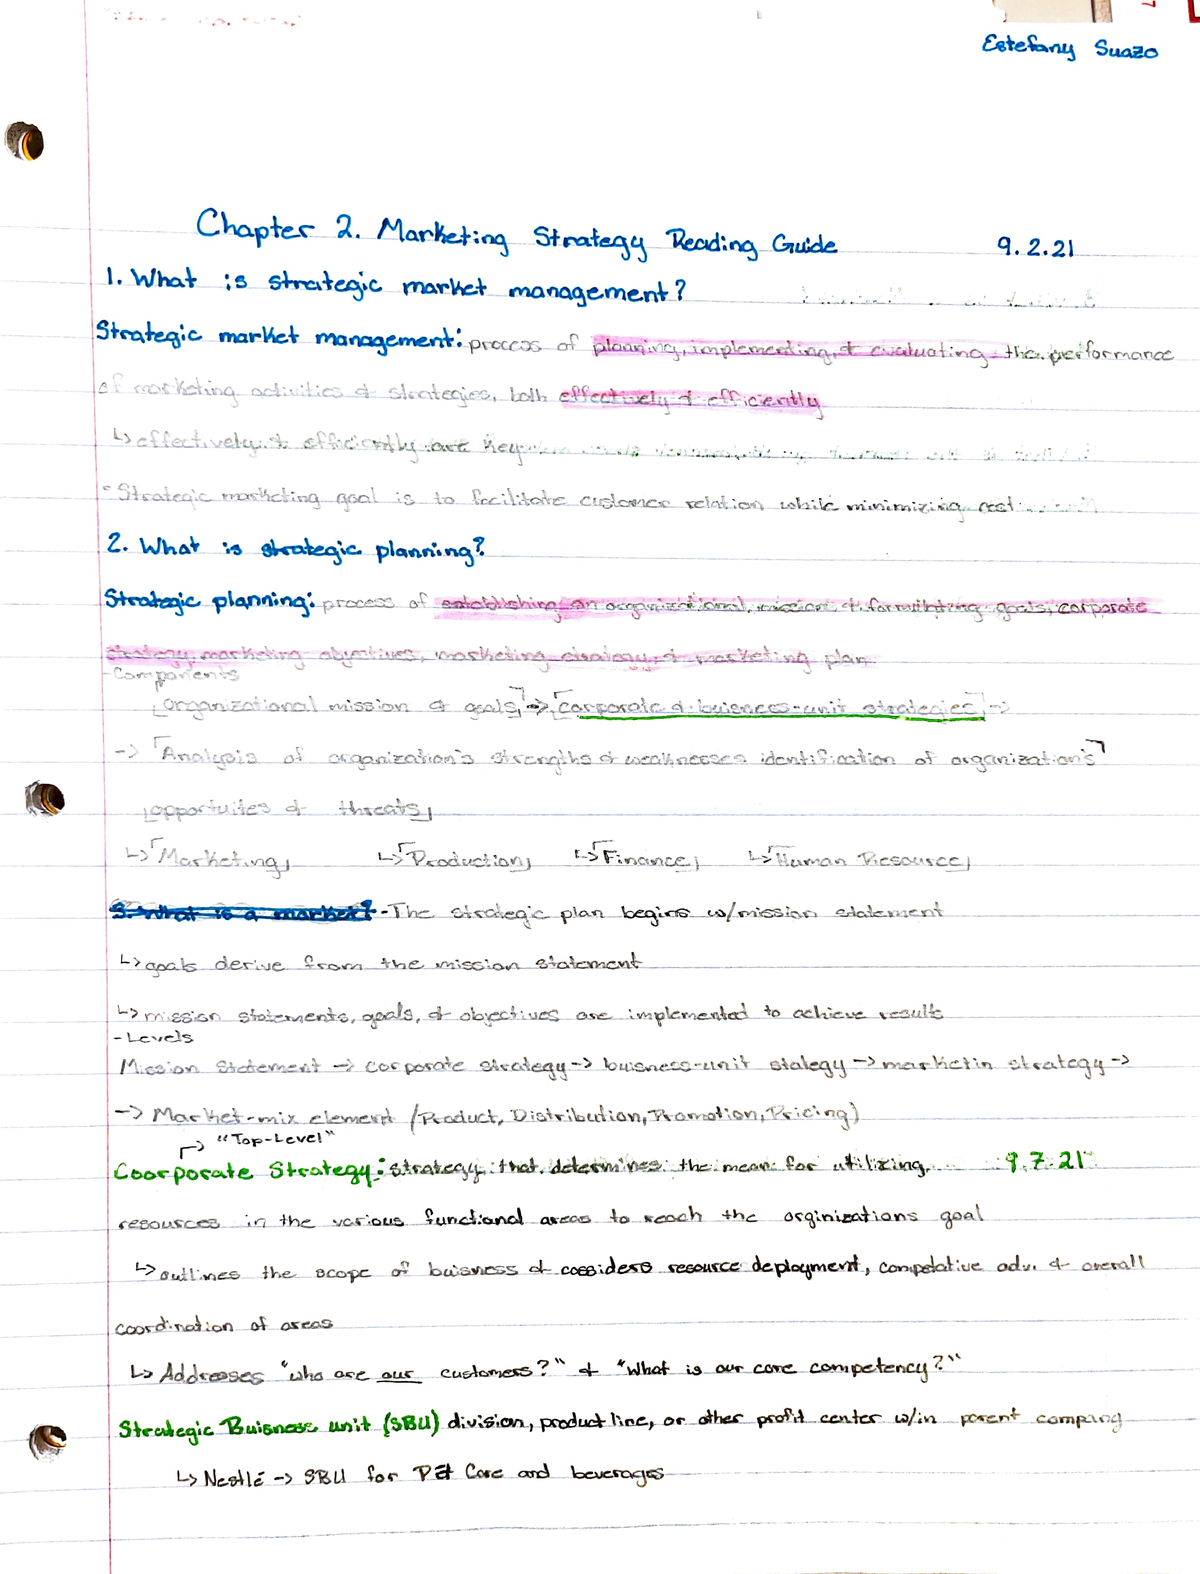 Estefany Suazo
Chapter 2. Marketing Strategy Reading Guide 9.2.21
1. What is strategic market management?
Strategic market management: proccos of planning, implementing, & evaluating the performance
of marketing activities & strategies, both effectively & efficiently
↳ effectively & efficiently are key
- Strategic marketing goal is to facilitate customer relation while minimizing cost
2. What is strategic planning?
Strategic planning: process of establishing an organizational mission & formulating goals, corporate
strategy, marketing objectives, marketing strategy, & marketing plan
- Components
⌊organizational mission & goals⌉ -> ⌈corporate & buisness-unit strategies⌋ ->
-> ⌈Analysis of organization's strengths & weaknesses identification of organization's⌉
⌊opportuites & threats⌋
↳ ⌈Marketing⌋ ↳ ⌈Production⌋ ↳ ⌈Finance⌋ ↳ ⌈Human Resource⌋
3. What is a market? - The strategic plan begins w/mission statement
↳ goals derive from the mission statement
↳ mission statements, goals, & objectives are implemented to achieve results
- Levels
Mission Statement -> corporate strategy -> buisness-unit stategy -> marketin strategy ->
-> Market-mix element (Product, Distribution, Promotion, Pricing)
"Top-Level"
Coorporate Strategy: strategy that determines the mean for utilizing 9.7.21
resources in the various functional areas to reach the orginizations goal
↳ outlines the scope of buisness & cossiders resource deployment, competative adv. & overall
coordination of areas
↳ Addresses "who are our customers?" & "What is our core competency?"
Strategic Buisness unit (SBU) division, product line, or other profit center w/in parent company
↳ Nestlé -> SBU for Pet Care and beverages